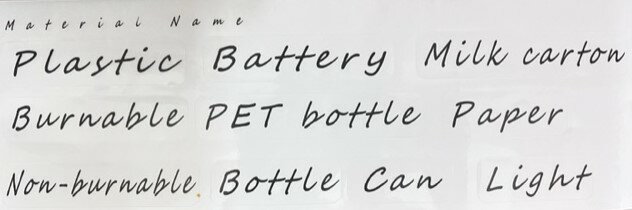 Material Name
Plastic Battery Milk carton
Burnable PET bottle Paper
Non-burnable Bottle Can Light